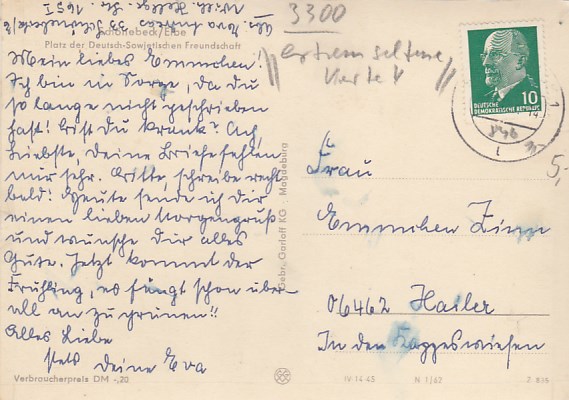 Schönebeck/Elbe
Platz der Deutsch-Sowjetischen Freundschaft
Mein liebes Emmchen!
Ich bin in Sorge, da du
so lange nicht geschrieben
hast! Bist du krank? Ach,
Liebste, deine Briefe fehlen
mir sehr. Bitte, schreibe recht
bald! Heute sende ich dir
einen lieben Morgengruß
und wünsche dir alles
Gute. Jetzt kommt der
Frühling, es fängt schon über-
all an zu grünen!!
Alles Liebe
stets deine Eva
Verbraucherpreis DM -,20
Gebr. Garloff KG · Magdeburg
3300
extrem seltene
Karte!
10
DEUTSCHE
DEMOKRATISCHE REPUBLIK
5,-
Frau
Emmchen
06462 Hailer
In den
IV-14-45 N 1/62 Z 835